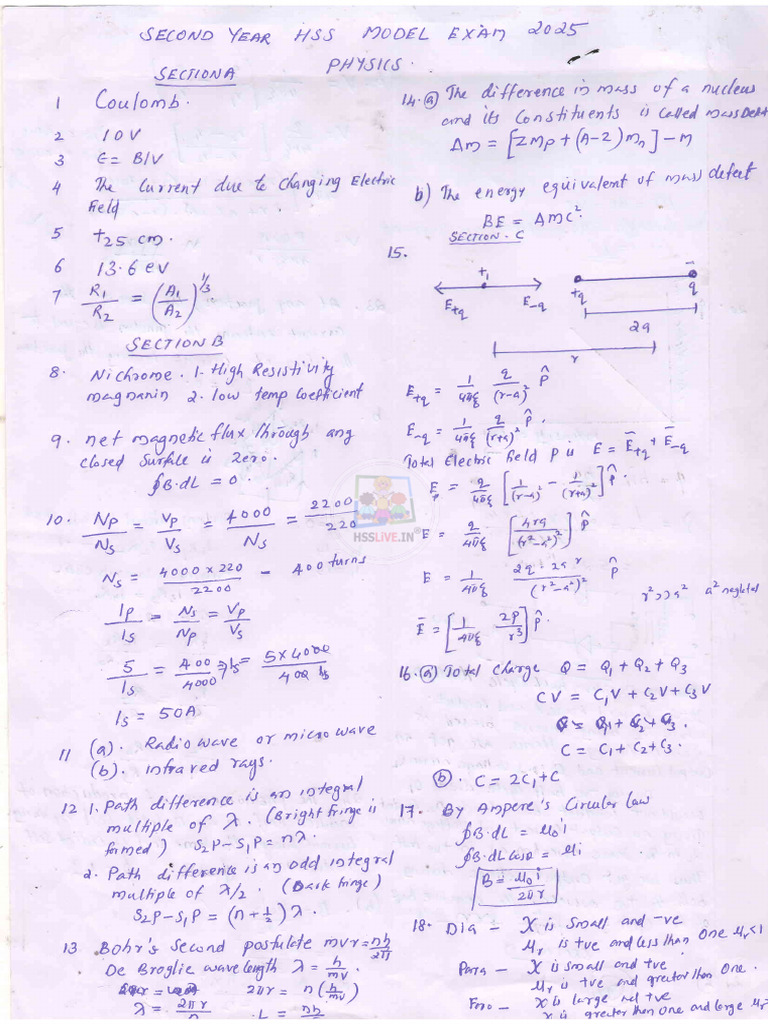 SECOND YEAR HSS MODEL EXAM 2025
PHYSICS
SECTION A
1 Coulomb.
2 10V
3 E = Blv
4 The current due to changing Electric
field
5 +25 cm.
6 13.6 ev
7 R₁/R₂ = (A₁/A₂)^1/3
SECTION B
8. Nichrome. 1. High Resistivity
magnanin 2. low temp Coefficient
9. net magnetic flux through any
closed Surface is zero.
∮B·dL = 0.
10. Np/Ns = Vp/Vs = 4000/Ns = 2200/220
Ns = 4000 x 220/2200 - 400 turns
Ip/Is = Ns/Np = Vp/Vs
5/Is = 400/4000, Is = 5x4000/400
Is = 50A
11 (a). Radio wave or micro wave
(b). infrared rays.
12 1. Path difference is an integral
multiple of λ. (Bright fringe is
formed) S₂P-S₁P = nλ.
2. Path difference is an odd integral
multiple of λ/2. (Dark fringe)
S₂P-S₁P = (n+½)λ.
13 Bohr's Second postulate mvr = nh/2π
De Broglie wavelength λ = h/mv
2πr = n(h/mv)
λ = 2πr/n · L = nh
14. (a) The difference in mass of a nucleus
and its Constituents is called mass Defect
Δm = [Zmp + (A-Z)mn] - M
b) The energy equivalent of mass defect
BE = Δmc².
SECTION - C
15.
+1
E+q E-q
+q - q
2a
r
E+q = 1/4πε q/(r-a)² p̂
E-q = 1/4πε q/(r+a)² p̂.
Total Electric field P is E = Ē+q + Ē-q
Ep = q/4πε [1/(r-a)² - 1/(r+a)²] p̂.
E = q/4πε [4ra/(r²-a²)²] p̂
E = 1/4πε 2q·2a r/(r²-a²)² p̂
r²>>a² a² neglected
Ē = [1/4πε 2P/r³] p̂.
16. (a) Total Charge Q = Q₁ + Q₂ + Q₃
CV = C₁V + C₂V + C₃V
C = C₁ + C₂ + C₃.
(b). C = 2C₁ + C
17. By Ampere's Circular law
∮B·dL = μ₀i
∮B·dL cosθ = μi
B = μ₀i/2πr
18. Dia - X is Small and -ve
μr is +ve and less than one μr<1
Para - X is small and +ve
μr is +ve and greater than One.
Ferro - X is large and +ve
X is greater than One and large μr